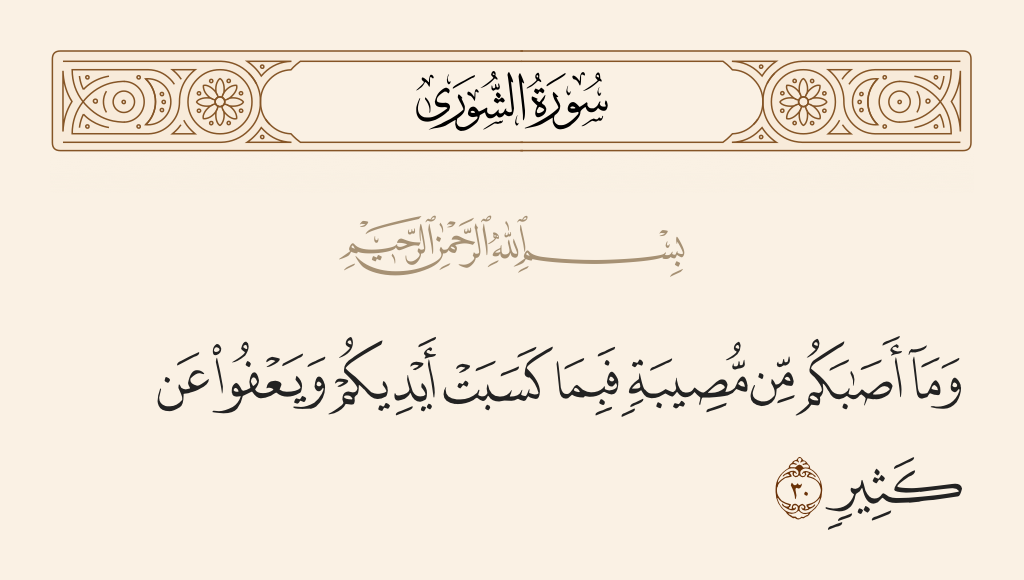 سُورَةُ الشُّورَىٰ
بِسْمِ ٱللَّهِ ٱلرَّحْمَٰنِ ٱلرَّحِيمِ
وَمَآ أَصَٰبَكُم مِّن مُّصِيبَةٍ فَبِمَا كَسَبَتْ أَيْدِيكُمْ وَيَعْفُوا۟ عَن
كَثِيرٍ ٣٠